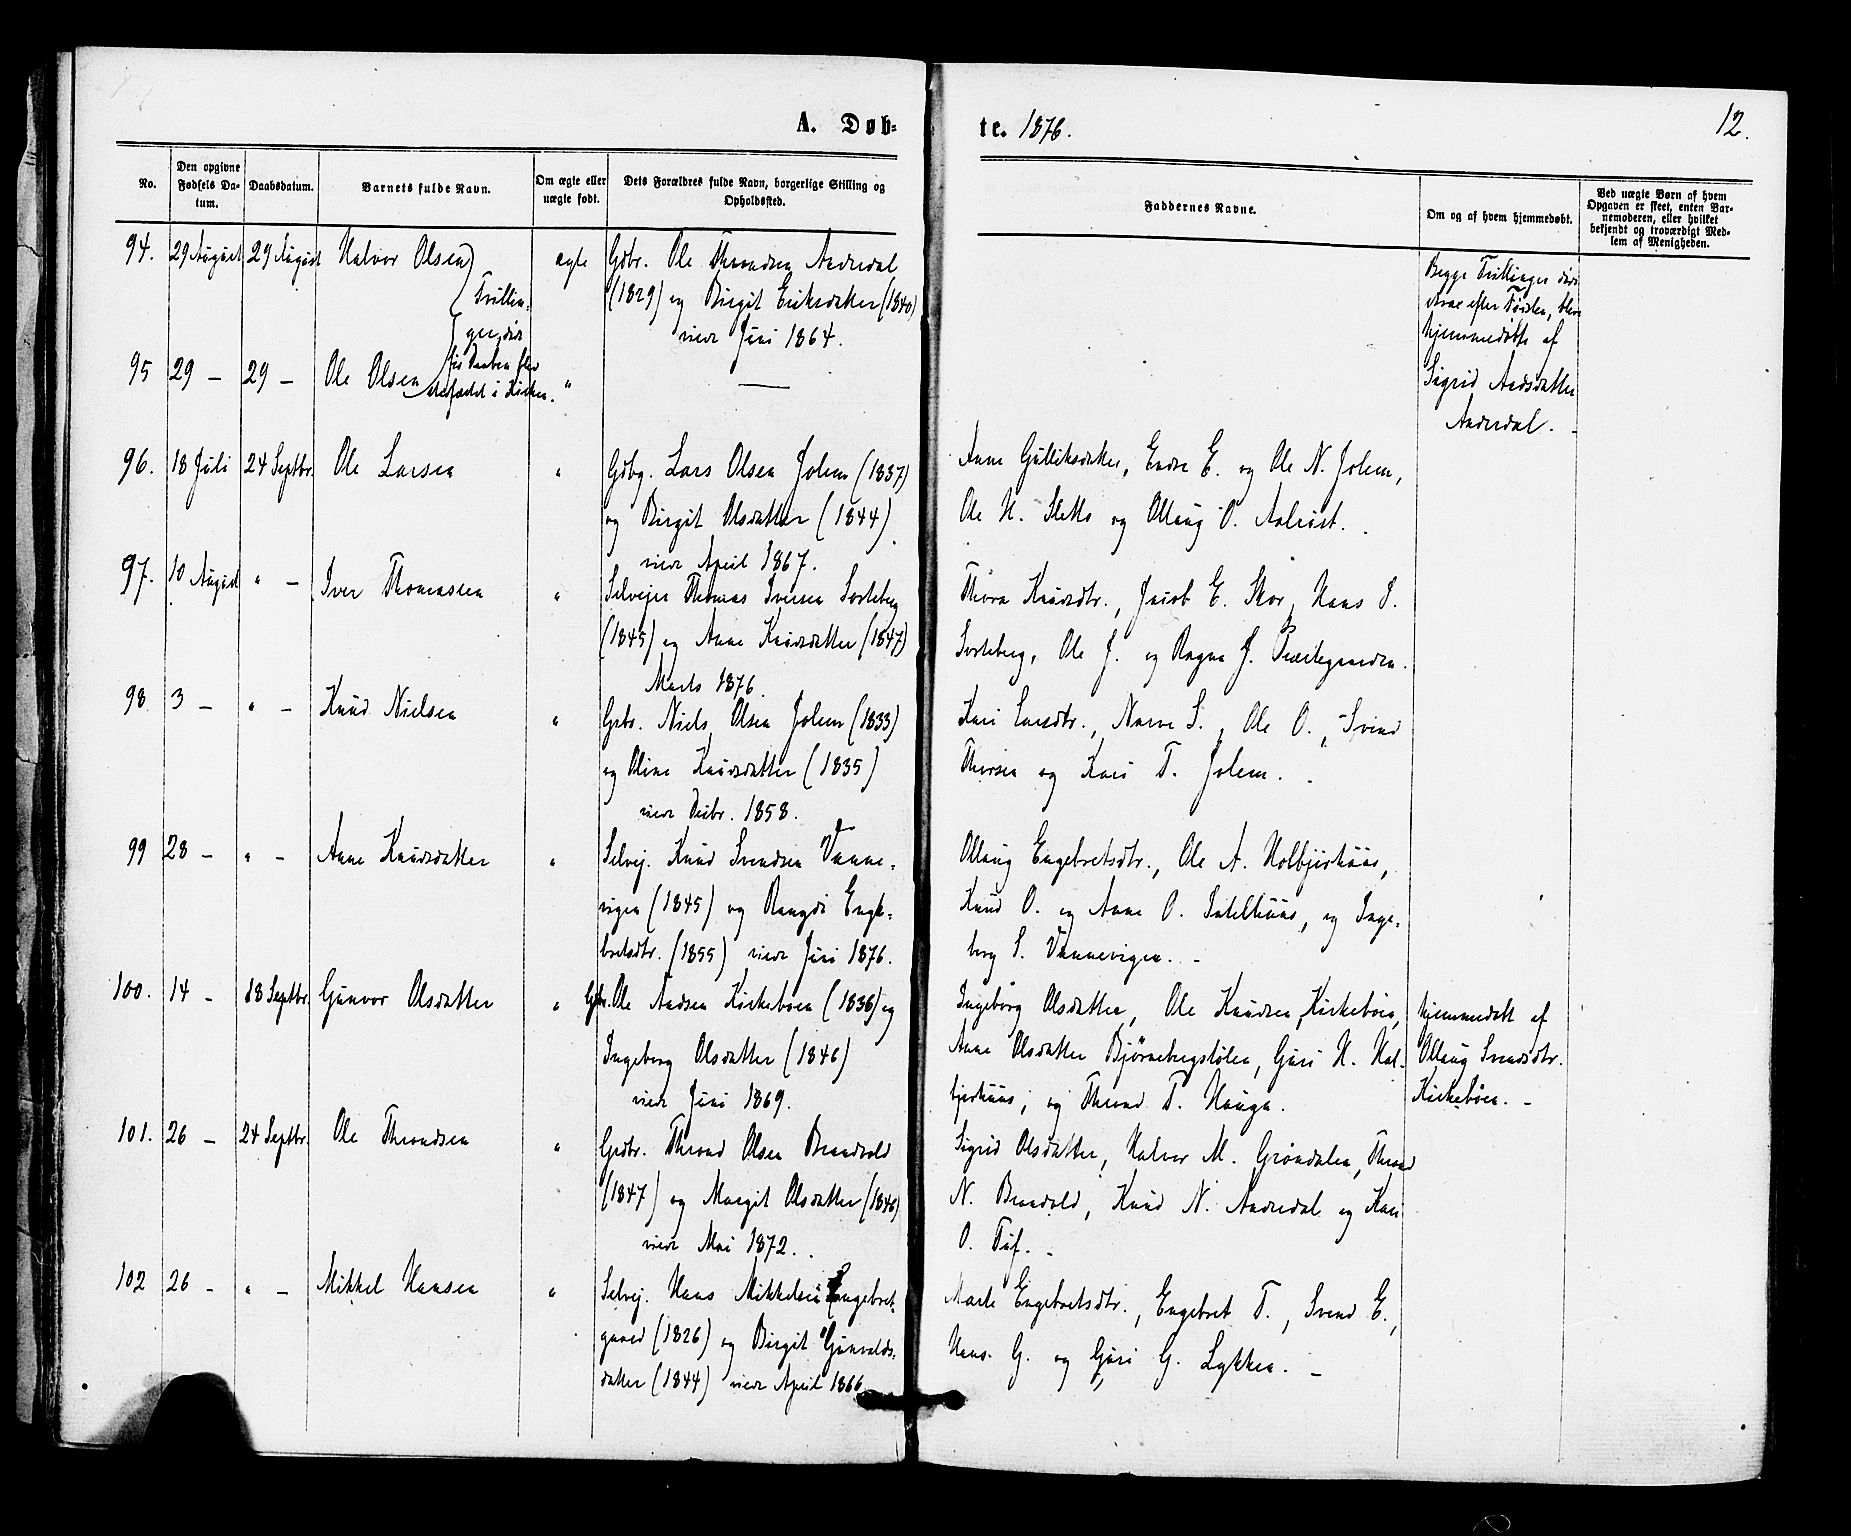 A. Døb-
te. 1876.
12.
No.
Den opgivne
Fødsels Da-
tum.
Daabsdatum.
Barnets fulde Navn.
Om ægte eller
uægte født.
Dets Forældres fulde Navn, borgerlige Stilling og
Opholdssted.
Faddernes Navne.
Om og af hvem hjemmedøbt.
Ved uægte Børn af hvem
Opgaven er skeet, enten Bar-
nemoderen, eller hvilket
bekjendt og troværdigt Med-
lem af Menigheden.
94. 29 August 29 August Halvor Olsen ægte Gdbr. Ole Throndsen
(1829) og Birgit Eriksdatter (1840)
viede Juni 1864.
Tvillin-
ger, døde
Begge Tvillinger døde
efter Fødslen, blev
hjemmedøbte af
Sigrid
95 29 – 29 – Ole Olsen "
96. 18 Juli 24 Septbr. Ole Larsen " Gdbg. Lars Olsen Jolem (1837)
og Birgit Olsdatter (1844)
viede April 1867.
Anne Gulliksdatter, Endre E. og Ole N. Jolem,
Ole H. Sletto og Ollaug O.
97. 10 August " – Iver Thomassen " Selvejer Thomas Iversen Sorteberg
(1845) og Anne Knudsdatter (1847)
Marts 1876.
Thora Knudsdtr., Jacob E. Skor, Hans I.
Sorteberg, Ole J. og Ragne J.
98 3 – " – Knud Nielsen " Grbr. Niels Olsen Jolem (1833)
og Oline Knudsdatter (1835)
viede Decbr. 1858.
Kari Larsdtr., Narve S., Ole O., Svend
Thorsen og Kari T. Jolem.
99 28 – " – Anne Knudsdatter " Selvej. Knud Svendsen Vanne-
vigen (1845) og Rangdi Enge-
bretsdtr. (1855) viede Juni 1876.
Ollaug Engebretsdtr., Ole A.
Knud O. og Anne O. og Inge-
borg S. Vannevigen. –
100. 14 – 18 Septbr. Gunvor Olsdatter " Gbr. Ole Andsen Kirkeboen (1836) og
Ingeborg Olsdatter (1846)
viede Juni 1869.
Ingeborg Olsdatter, Ole Knudsen Kirkeboen,
Anne Olsdatter Bjørnebergstølen, Guri H. Hol-
og Thrond T. Hauga.
hjemmedøbt af
Ollaug Svendsdtr.
Kirkebøen. –
101. 26 – 24 Septbr. Ole Throndsen " Grdbr. Thrond Olsen Brandvold
(1847) og Margit Olsdatter (1846)
viede Mai 1872.
Sigrid Olsdatter, Halvor M. Grøndalen, Thrond
N. Brandvold, Knud N. og Kari
O. Tuf. –
102 26 – " – Mikkel Hansen " Selvej. Hans Mikkelsen Engebret-
gaard (1826) og Birgit Gunvalds-
datter (1844) viede April 1866
Marte Engebretsdtr., Engebret T., Svend E.,
Hans G. og Guri G. Lykken. –